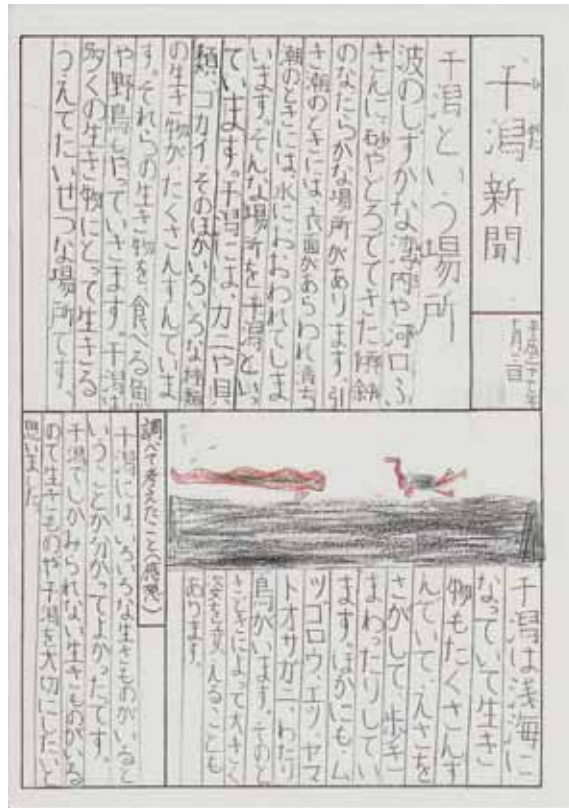 干潟新聞
ひがた
干潟という場所
波のしずかな湾内や河口ふ
きんに、砂やどろでできた傾斜
のなだらかな場所があります。引
き潮のときには、表面があらわれ、満ち
潮のときには、水におおわれてしま
います。そんな場所を干潟といっ
ています。干潟には、カニや貝
類、ゴカイ、そのほかいろいろな種類
の生き物がたくさんすんでいま
す。それらの生き物を食べる魚
や野鳥もやっていきます。干潟は
多くの生き物にとって生きる
うえでたいせつな場所です。
干潟は浅海に
なっていて生き
物もたくさんす
んでいて、えさを
さがして、歩き
まわったりしてい
ます。ほかにも、ム
ツゴロウ、エツ、ヤマ
トオサガニ、わたり
鳥がいます。そのと
きどきによって大きく
姿を変えることも
あります。
調べて考えたこと(感想)
干潟には、いろいろな生きものがいると
いうことが分かってよかったです。
干潟でしかみられない生きものがいる
ので生きものや干潟を大切にしたいと
思いました。